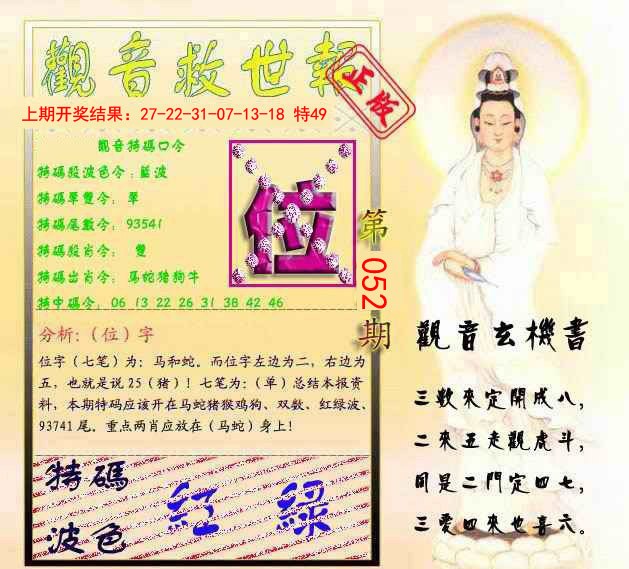 觀音救世報
正版
上期开奖结果：27-22-31-07-13-18 特49
觀音特碼口令
特碼段波色令:藍波
特碼單雙令： 單
特碼尾數令： 93541
特碼段肖令： 雙
特碼出肖令： 馬蛇猪狗牛
特中碼令： 06 13 22 26 31 38 42 46
位
第052期
分析:（位）字
位字（七笔）为：马和蛇。而位字左边为二，右边为
五，也就是说 25（猪）！七笔为：（单）总结本报资
料，本期特码应该开在马蛇猪猴鸡狗、双数、红绿波、
93741 尾。重点两肖应放在（马蛇）身上！
特碼
波色
紅 綠
觀音玄機書
三數來定開成八，
二來五走觀虎斗，
同是二門定四七，
三愛四來也喜六。